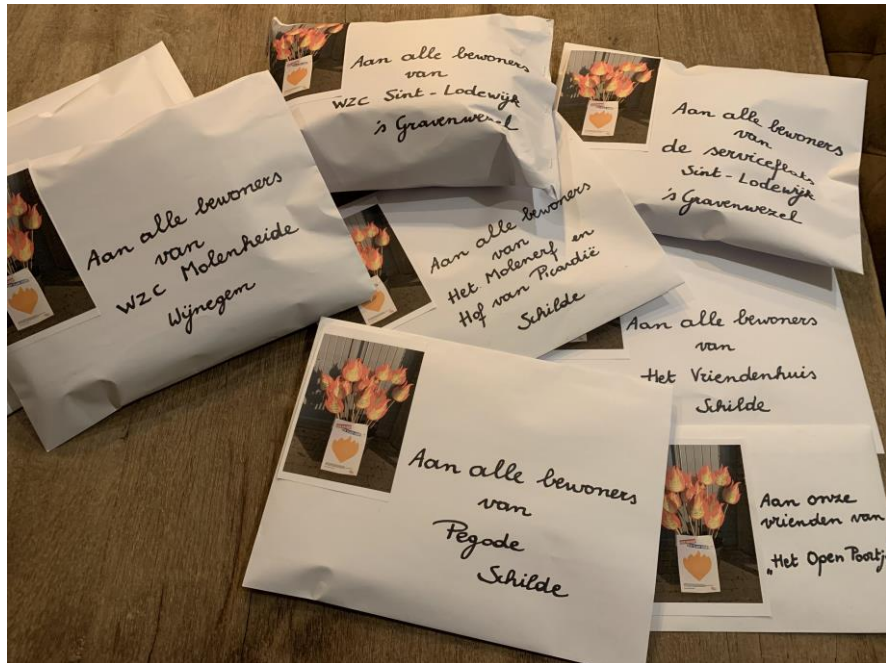 Aan alle bewoners
van
WZC Sint-Lodewijk
's Gravenwezel
Aan alle bewoners
van
de serviceflats
Sint-Lodewijk
's Gravenwezel
Aan alle bewoners
van
WZC Molenheide
Wijnegem
Aan alle bewoners
van
Het Molenerf en
Hof van Picardië
Schilde
Aan alle bewoners
van
Het Vriendenhuis
Schilde
Aan alle bewoners
van
Pegode
Schilde
Aan onze
vrienden van
„Het Open Poortj